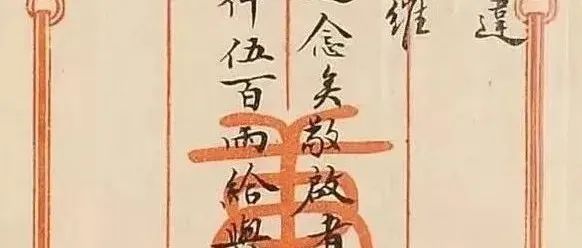 違
維
念矣敬啟者
仟伍百兩給與